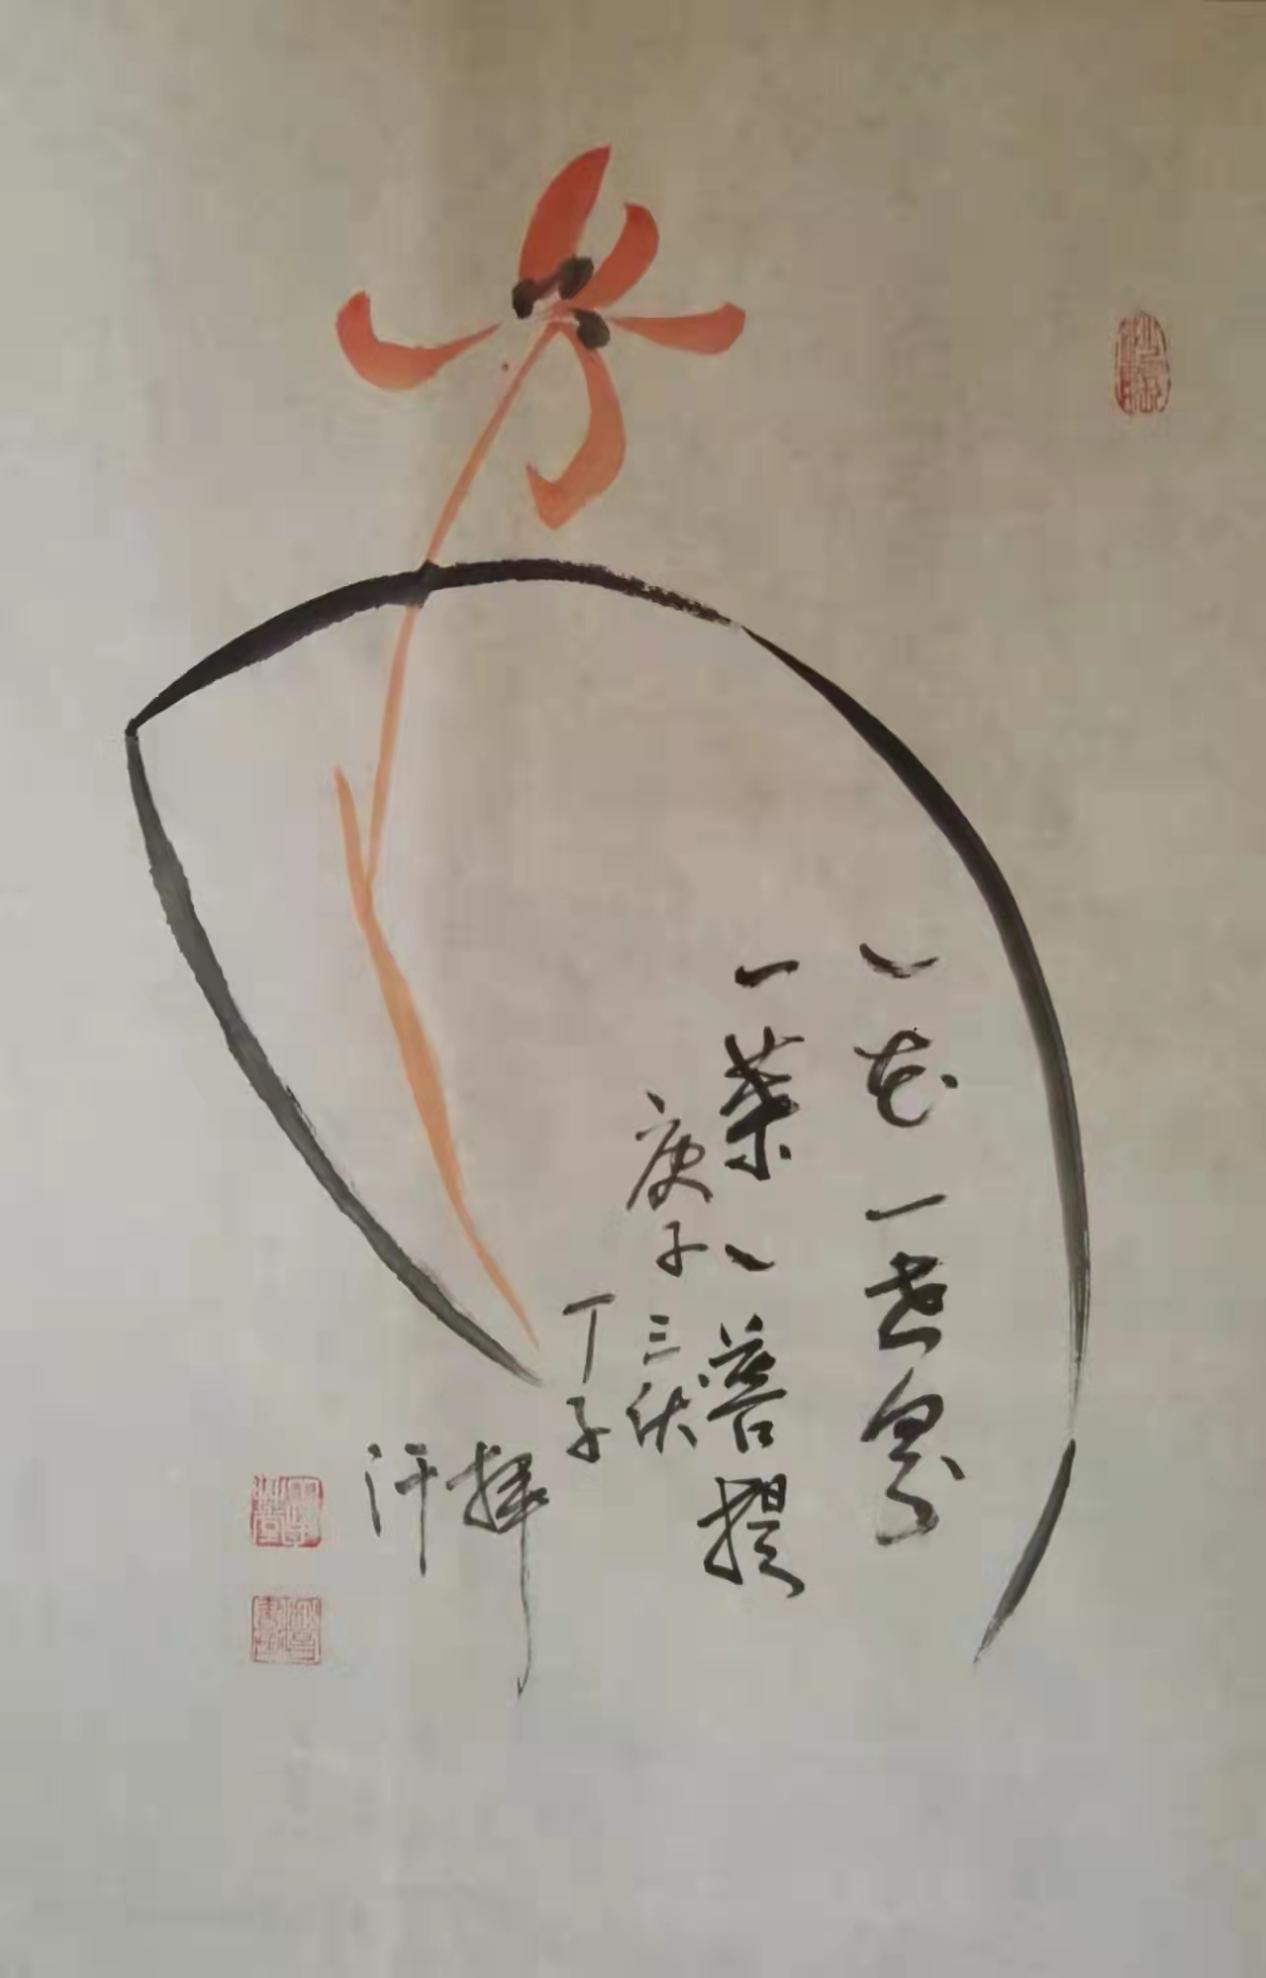 一花一世界
一叶一菩提
庚子三伏
丁子
挥汗